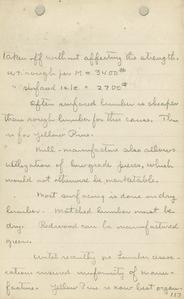 taken off without affecting the strength.
wt. rough per M = 3400 #
" surfaced 1 s 1 e = 2700 #
Often surfaced lumber is cheaper
than rough lumber for this cause. This
is for Yellow Pine.
Mill-manufacture also allows
utilization of low grade pieces, which
would not otherwise be marketable.
Most surfacing is done on dry
lumber. Matched lumber must be
dry. Redwood can be manufactured
green.
Until recently no Lumber Asso-
ciation insured uniformity of manu-
facture. Yellow Pine is now best organ-
113